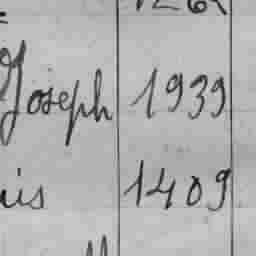 Joseph 1939
is 1409